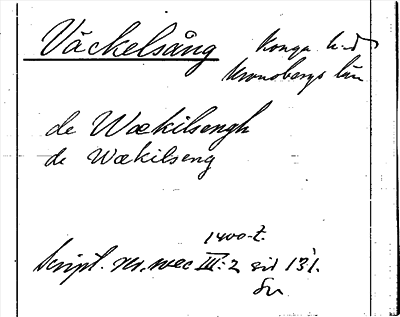 Väckelsång Konga h-d
Kronobergs län
de Wækilsengh
de Wækilseng
1400-t.
Script. rer. svec III:2 sid 131.